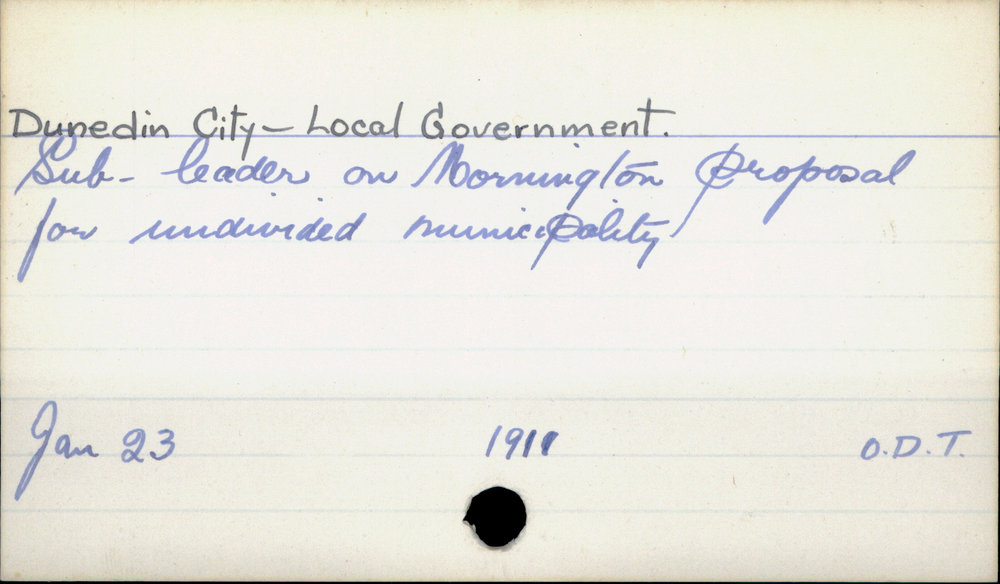 Dunedin City - Local Government.
Sub-leader on Mornington proposal
for undivided municipality
Jan 23 1911 O.D.T.